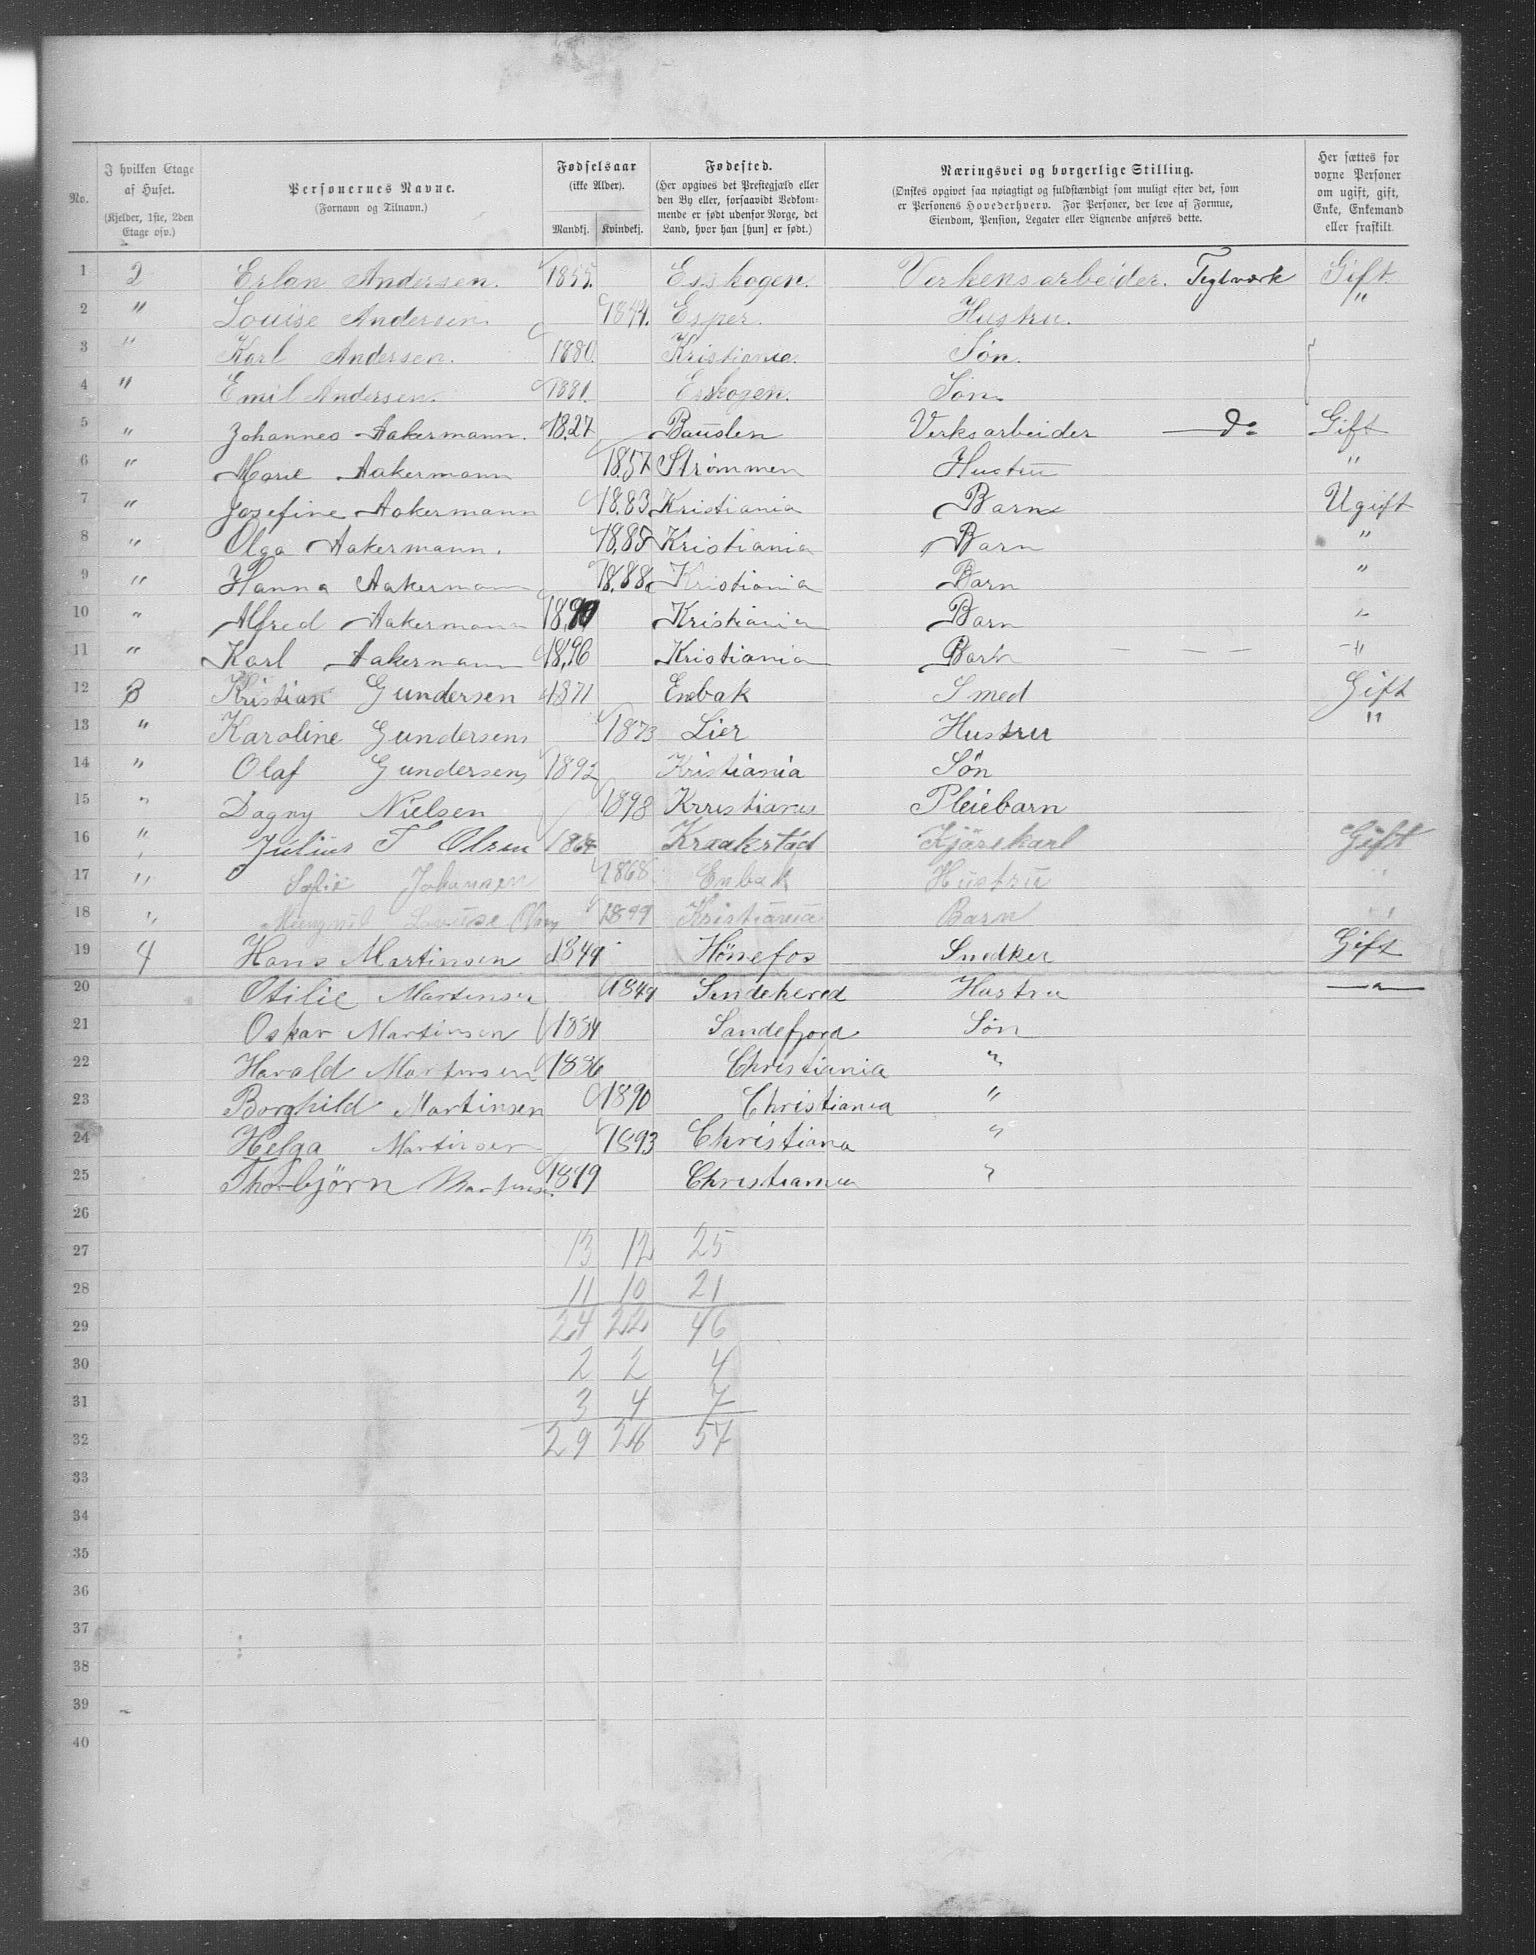 No.
I hvilken Etage af Huset. (Kjelder, 1ste, 2den Etage osv.)
Personernes Navne. (Fornavn og Tilnavn.)
Fødselsaar (ikke Alder). Mandkj. Kvindekj.
Fødested. (Her opgives det Prestegjæld eller den By eller, forsaavidt Vedkommende er født udenfor Norge, det Land, hvor han [hun] er født.)
Næringsvei og borgerlige Stilling. (Ønskes opgivet saa nøiagtigt og fuldstændigt som muligt efter det, som er Personens Hovederhverv. For Personer, der leve af Formue, Eiendom, Pension, Legater eller Lignende anføres dette.
Her sættes for voxne Personer om ugift, gift, Enke, Enkemand eller fraskilt.
1 2 Erlan Andersen. 1855. Esskogen. Verkensarbeider. Teglværk Gift.
2 " Louise Andersen. 1844. Esper. Hustru. "
3 " Karl Andersen. 1880. Kristiania. Søn.
4 " Emil Andersen. 1881. Esskogen. Søn.
5 " Johannes Aakermann. 18.27 Bauslen Verksarbeider — Do Gift
6 " Marie Aakermann 18.57 Strømmen Hustru "
7 " Josefine Aakermann 18.83 Kristiania Barn Ugift
8 " Olga Aakermann. 18.85 Kristiania Barn "
9 " Hanna Aakermann 18.88 Kristiania Barn "
10 " Alfred Aakermann 18.90 Kristiania Barn "
11 " Karl Aakermann 18.96 Kristiania Barn — — — "
12 3 Kristian Gundersen 1871 Enebak Smed Gift
13 " Karoline Gundersen 1873 Lier Hustru "
14 " Olaf Gundersen 1892 Kristiania Søn
15 " Dagny Nielsen 1898 Krristiania Pleiebarn
16 " Julius T Olsen 1864 Kraakstad Kjørekarl Gift
17 " Sofie Johansen 1868 Enbak Hustru "
18 " Louise Olsen 1899 Kristiania Barn "
19 4 Hans Martinsen 1849 Hønefos Snedker Gift
20 Otilie Martinsen 1849 Sandeherred Hustru — " —
21 Oskar Martinsen 1884 Sandefjord Søn
22 Harald Martinsen 1886 Christiania "
23 Borghild Martinsen 1890 Christiania "
24 Helga Martinsen 1893 Christiana "
25 Thorbjørn Martinsen. 1899 Christiania "
26
27 13 12 25
28 11 10 21
29 24 22 46
30 2 2 4
31 3 4 7
32 29 28 57
33
34
35
36
37
38
39
40